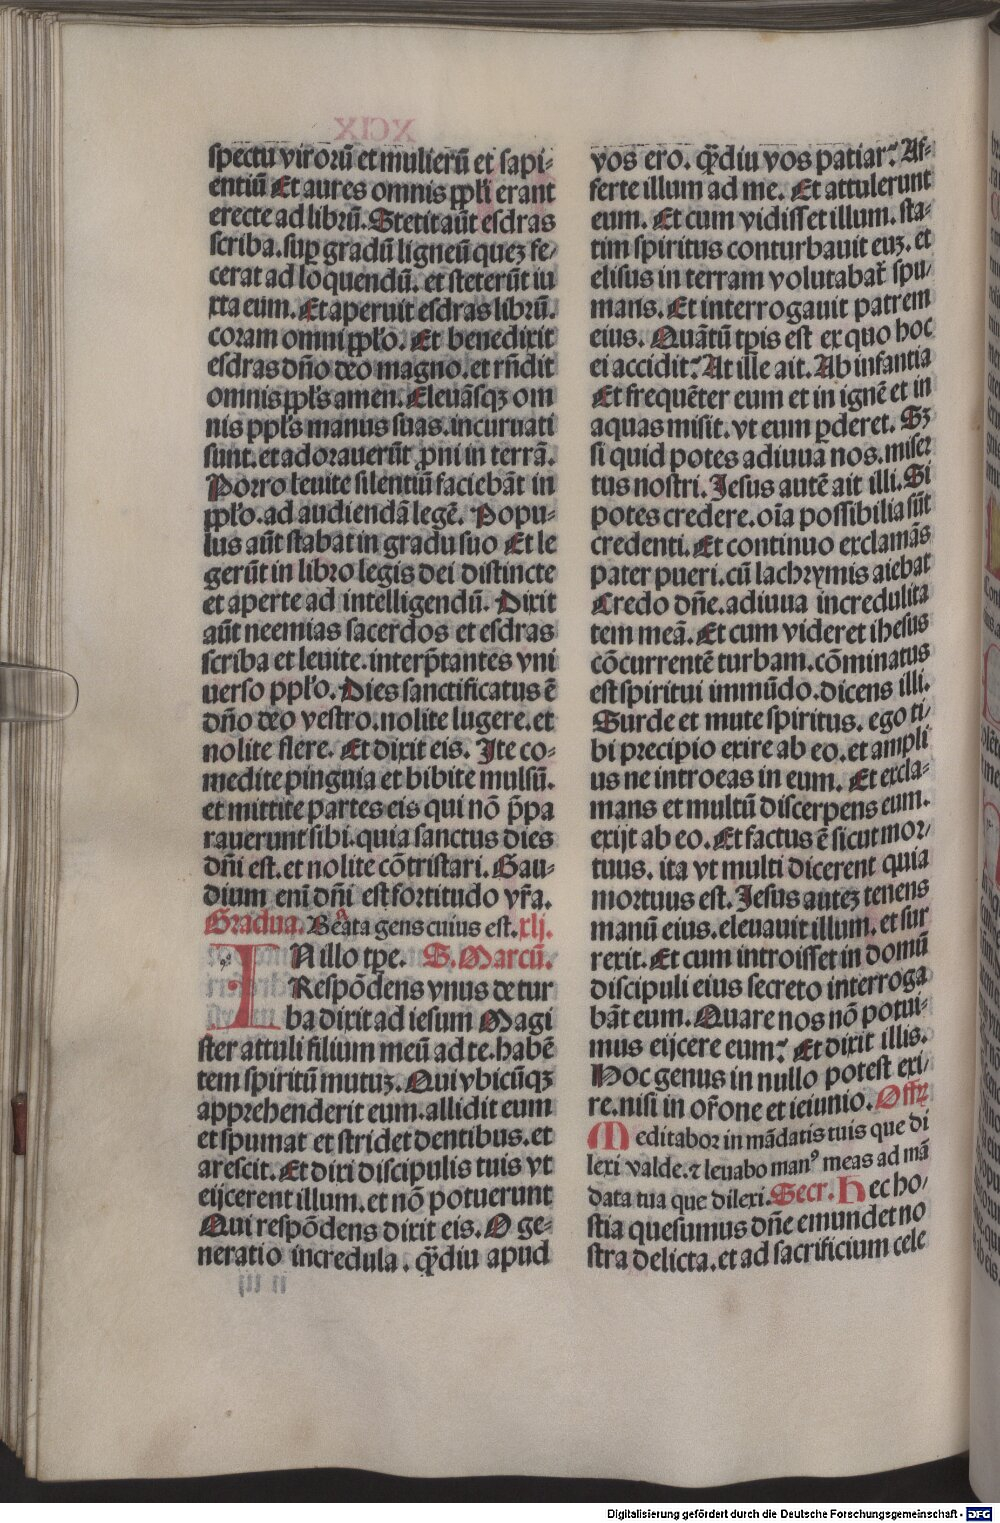 spectu virorū et mulierū et sapi-
entiū Et aures omnis ppłi erant
erecte ad librū. Stetit aūt esdras
scriba. sup gradū ligneū quez fe-
cerat ad loquendū. et steterūt iu
xta eum. Et aperuit esdras librū.
coram omni ppło. Et benedixit
esdras dño deo magno. et rñdit
omnis ppłs amen. Eleuāsqz om
nis ppłs manus suas. incuruati
sunt. et adorauerūt proni in terrā.
Porro leuite silentiū faciebāt in
ppło. ad audiendā legē. Popu-
lus aūt stabat in gradu suo Et le
gerūt in libro legis dei distincte
et aperte ad intelligendū. Dixit
aūt neemias sacerdos et esdras
scriba et leuite. interp̄tantes vni
uerso ppło. Dies sanctificatus ē
dño deo vestro. nolite lugere. et
nolite flere. Et dixit eis. Ite co-
medite pinguia et bibite mulsū.
et mittite partes eis qui nō p̄pa
rauerunt sibi. quia sanctus dies
dñi est. et nolite cōtristari. Gau-
dium eni dñi est fortitudo vr̄a.
Gradua. Beata gens cuius est. xlj.
IN illo tpe. S. Marcū.
Respōdens vnus de tur
ba dixit ad iesum Magi
ster attuli filium meū ad te. habē
tem spiritū mutuz. Qui vbicūqz
apprehenderit eum. allidit eum
et spumat et stridet dentibus. et
arescit. Et dixi discipulis tuis vt
eijcerent illum. et nō potuerunt
Qui respōdens dixit eis. O ge-
neratio incredula. q̄diu apud
vos ero. q̄diu vos patiar? Af-
ferte illum ad me. Et attulerunt
eum. Et cum vidisset illum. sta-
tim spiritus conturbauit euz. et
elisus in terram volutabat̄ spu-
mans. Et interrogauit patrem
eius. Quātū tpis est ex quo hoc
ei accidit? At ille ait. Ab infantia
Et frequēter eum et in ignē et in
aquas misit. vt eum pderet. Sz
si quid potes adiuua nos. miser
tus nostri. Jesus autē ait illi. Si
potes credere. oīa possibilia sūt
credenti. Et continuo exclamās
pater pueri. cū lachrymis aiebat
Credo dñe. adiuua incredulita
tem meā. Et cum videret ihesus
cōcurrentē turbam. cōminatus
est spiritui immūdo. dicens illi.
Surde et mute spiritus. ego ti-
bi precipio exire ab eo. et ampli
us ne introeas in eum. Et excla-
mans et multū discerpens eum.
exijt ab eo. Et factus ē sicut mor-
tuus. ita vt multi dicerent quia
mortuus est. Jesus autez tenens
manū eius. eleuauit illum. et sur
rexit. Et cum introisset in domū
discipuli eius secreto interroga
bāt eum. Quare nos nō potui-
mus eijcere eum? Et dixit illis.
Hoc genus in nullo potest exi-
re. nisi in or̄one et ieiunio. Offr̄
Meditabor in mādatis tuis que di
lexi valde. ⁊ leuabo manꝰ meas ad mā
data tua que dilexi. Secr. Hec ho-
stia quesumus dñe emundet no
stra delicta. et ad sacrificium cele
Digitalisierung gefördert durch die Deutsche Forschungsgemeinschaft - DFG